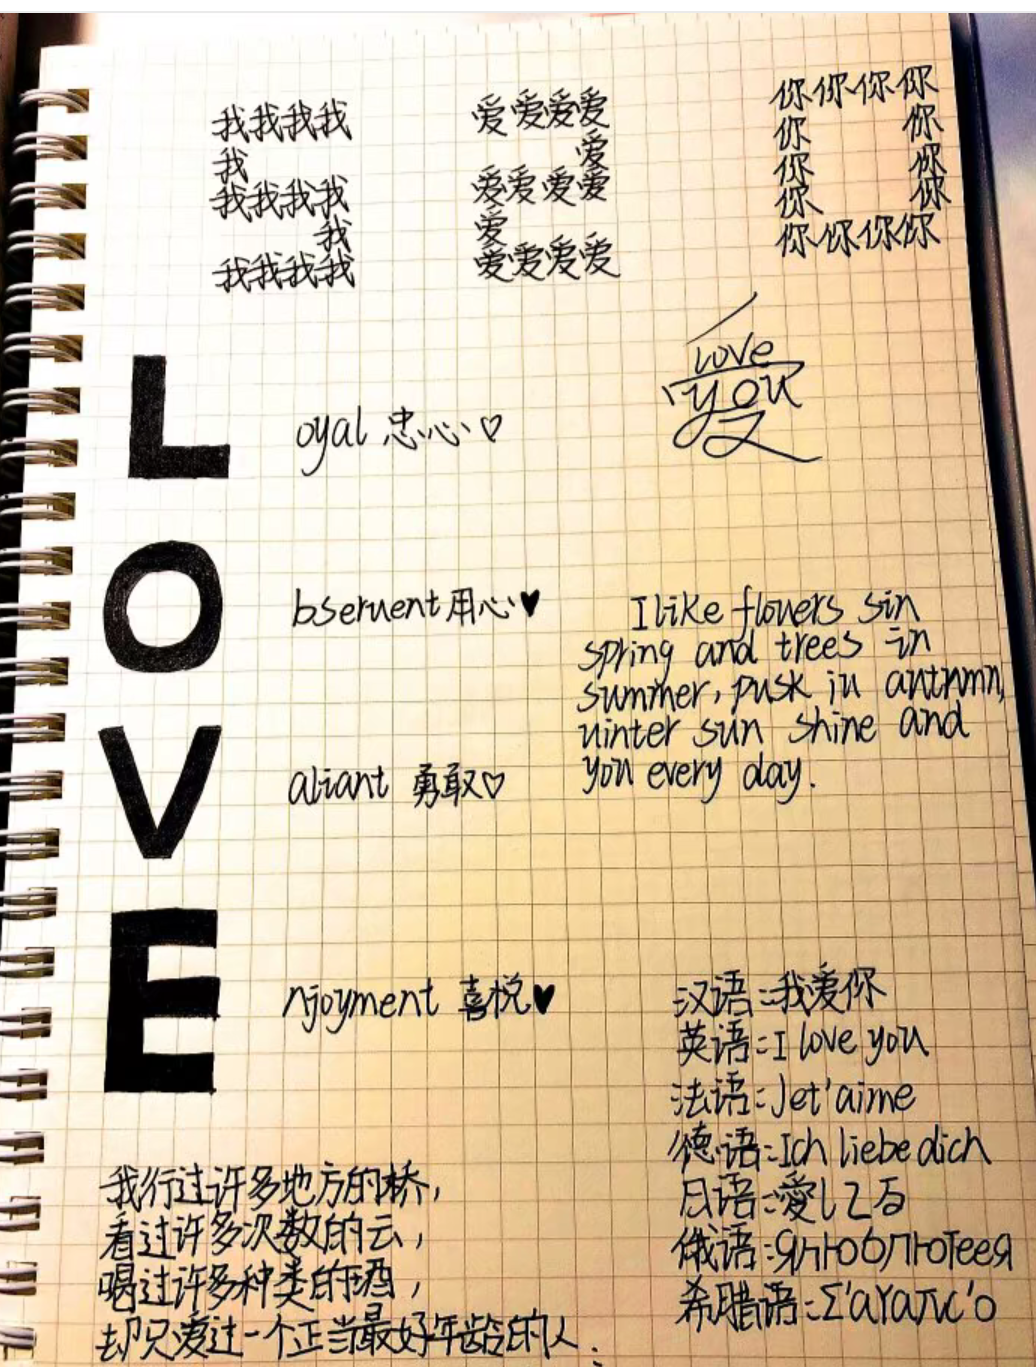 我我我我 爱爱爱爱 你你你你
我 爱 你 你
我我我我 爱爱爱爱 你 你
我 爱 你 你
我我我我 爱爱爱爱 你你你你
love
you
L oyal 忠心♡
O bseruent 用心♥
V aliant 勇敢♡
E njoyment 喜悦♥
I like flowers sin
spring and trees in
summer, pusk in autnmn,
uinter sun shine and
you every day.
汉语:我爱你
英语:I love you
法语:Jet'aime
德语:Ich liebe dich
日语:愛してる
俄语:Ялюблютеея
希腊语:Σ'αγαπώ'ο
我行过许多地方的桥,
看过许多次数的云,
喝过许多种类的酒,
却只爱过一个正当最好年龄的人.